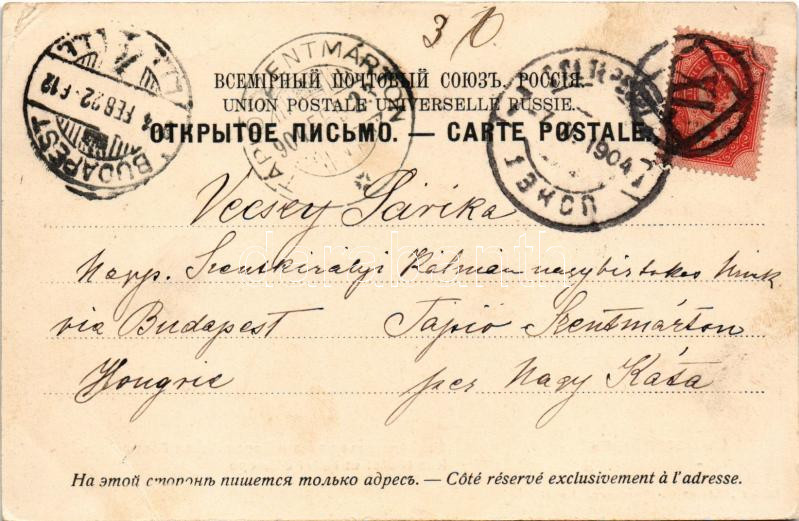 3
ВСЕМІРНЫЙ ПОЧТОВЫЙ СОЮЗЪ. РОССІЯ.
UNION POSTALE UNIVERSELLE RUSSIE.
ОТКРЫТОЕ ПИСЬМО. — CARTE POSTALE.
BUDAPEST
904 FEB 22
TÁPIÓ SZENTMÁRTON
1904
1 ЭКСП
Vecsey Sárika
Napp. Szentkirályi Kálmán nagybirtokos
via Budapest Tápió Szentmárton
Hongrie per Nagy Káta
darabanth
На этой сторонѣ пишется только адресъ. — Côté réservé exclusivement à l'adresse.